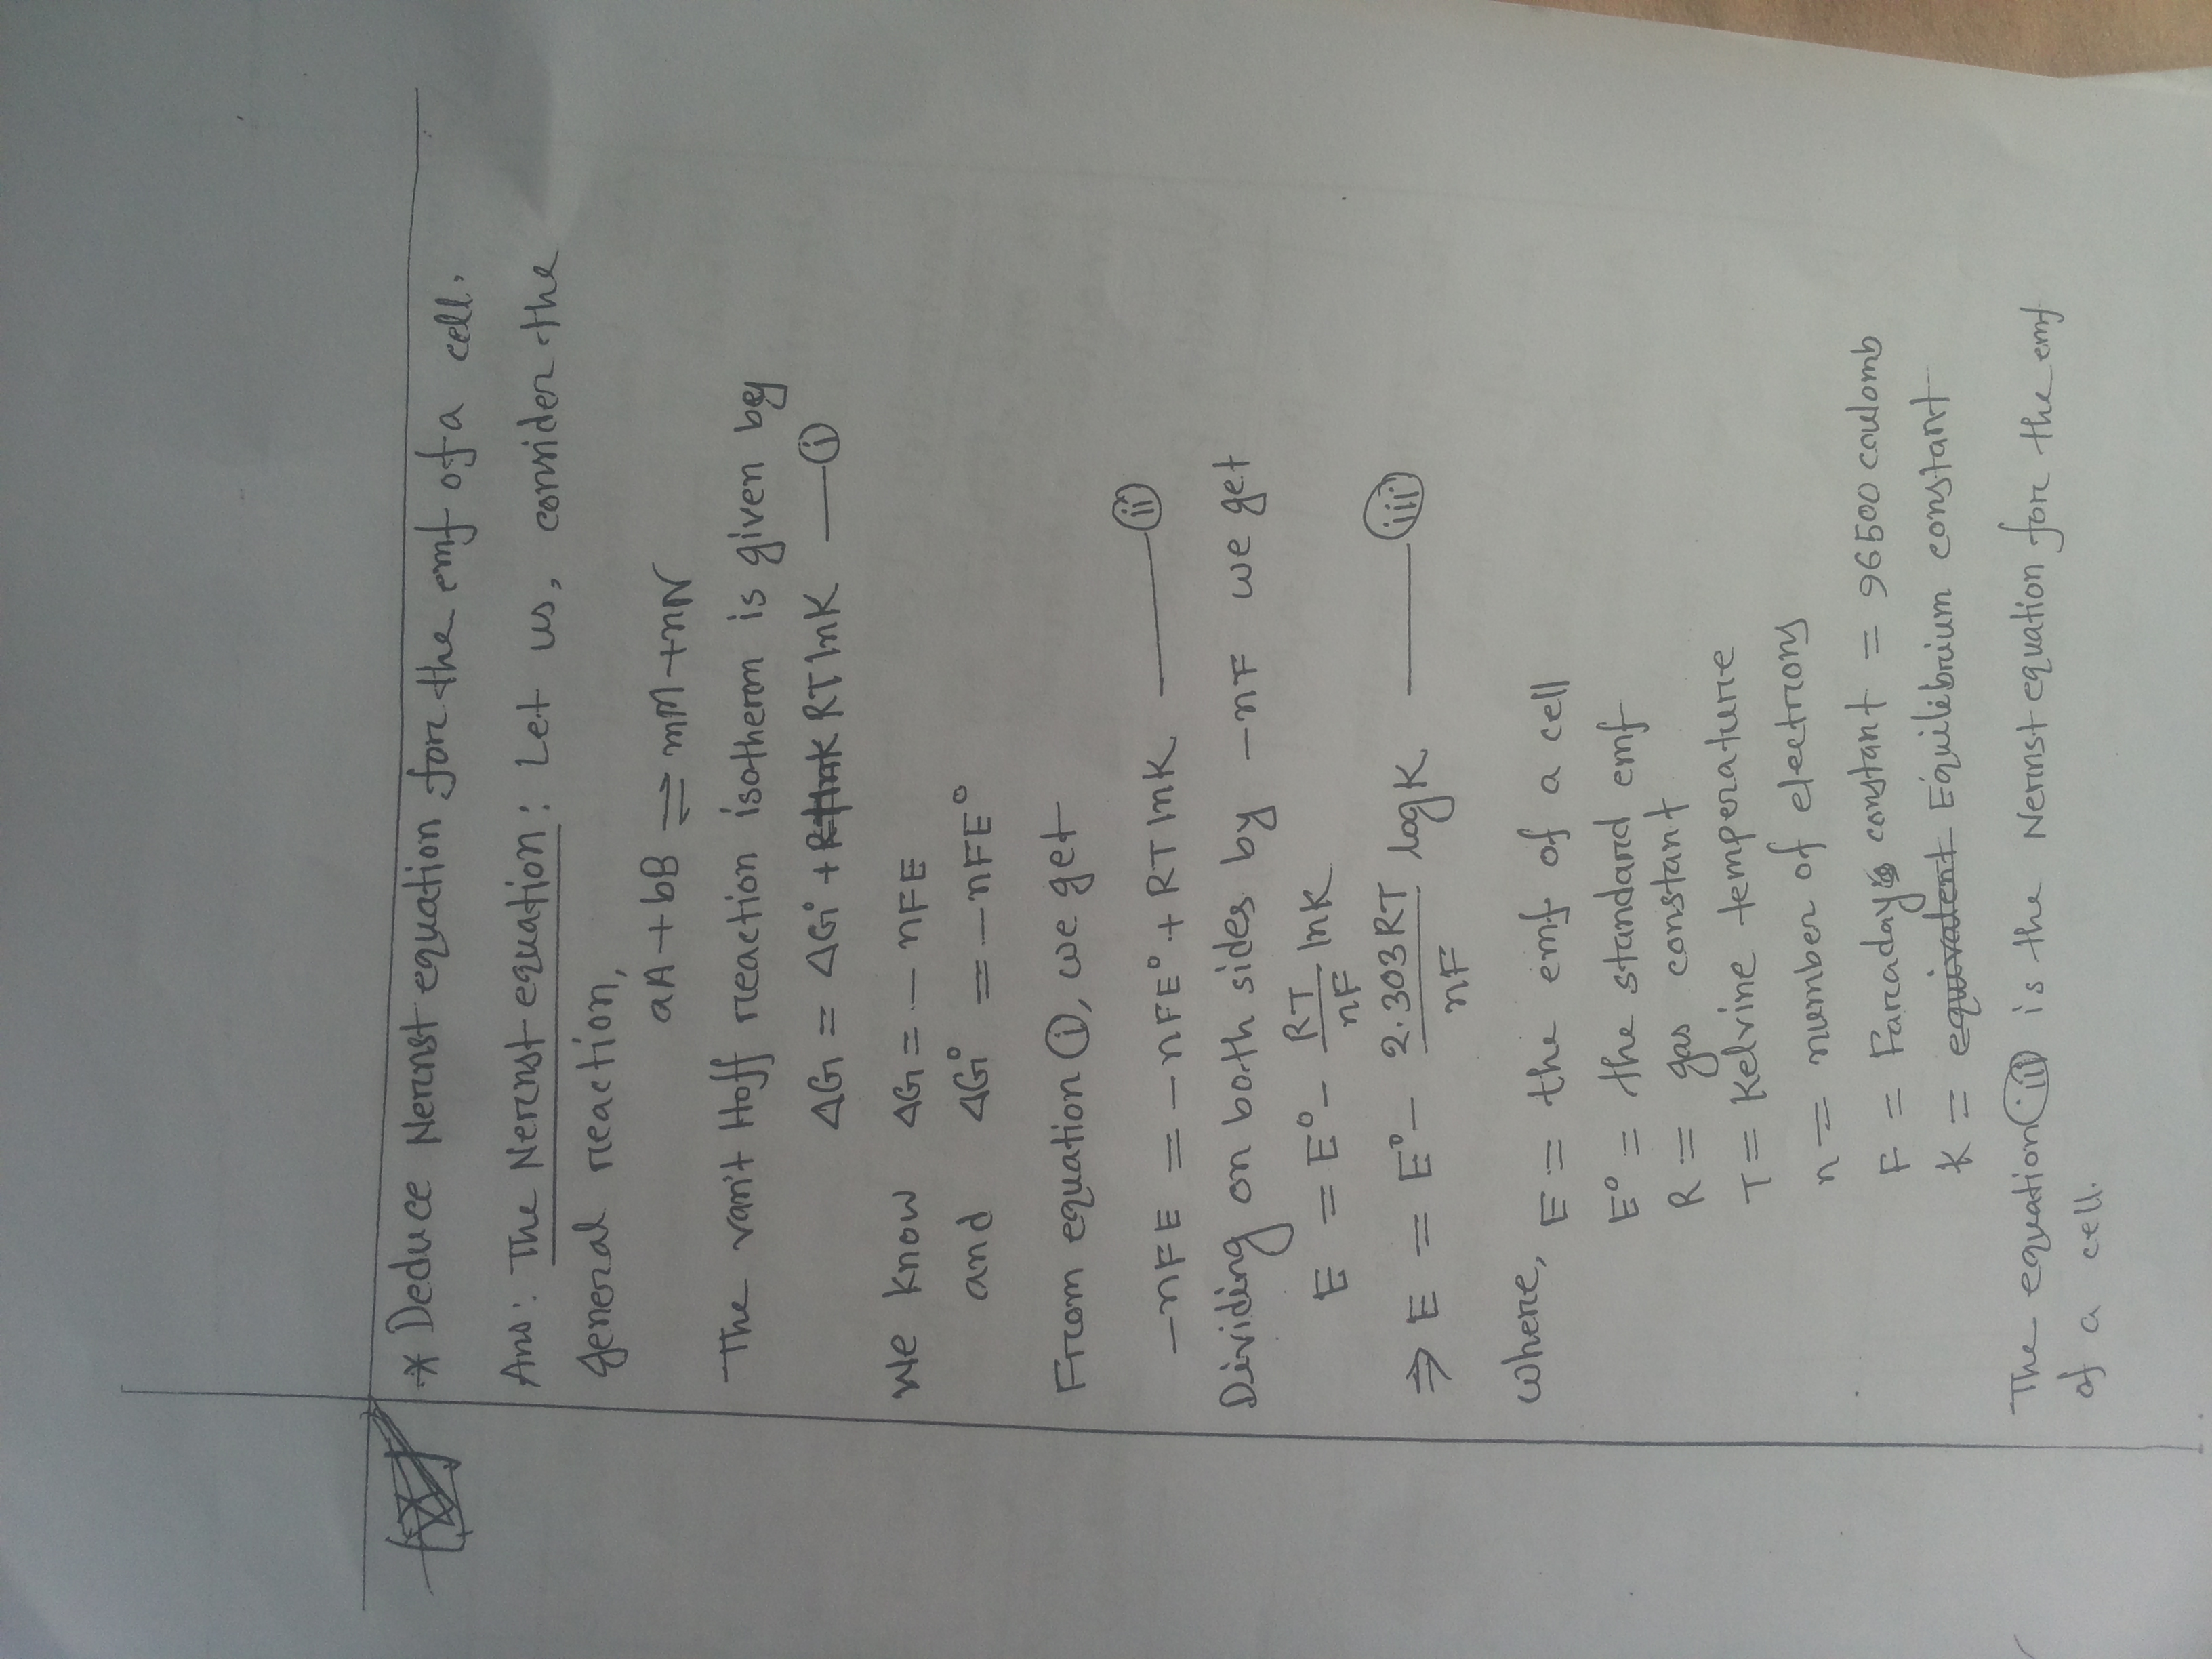 * Deduce Nernst equation for the emf of a cell.
Ans: The Nernst equation: Let us, consider the
general reaction,
aA + bB ⇌ mM + nN
The van't Hoff reaction isotherm is given by
ΔG = ΔG° + RT lnK —— (i)
We know ΔG = – nFE
and ΔG° = – nFE°
From equation (i), we get
–nFE = – nFE° + RT lnK —— (ii)
Dividing on both sides by –nF we get
E = E° – RT/nF lnK
⇒ E = E° – 2.303RT/nF logK —— (iii)
where, E = the emf of a cell
E° = the standard emf
R = gas constant
T = Kelvine temperature
n = number of electrons
F = Faraday's constant = 96500 coulomb
K = equivalent Equilibrium constant
The equation (iii) is the Nernst equation for the emf
of a cell.